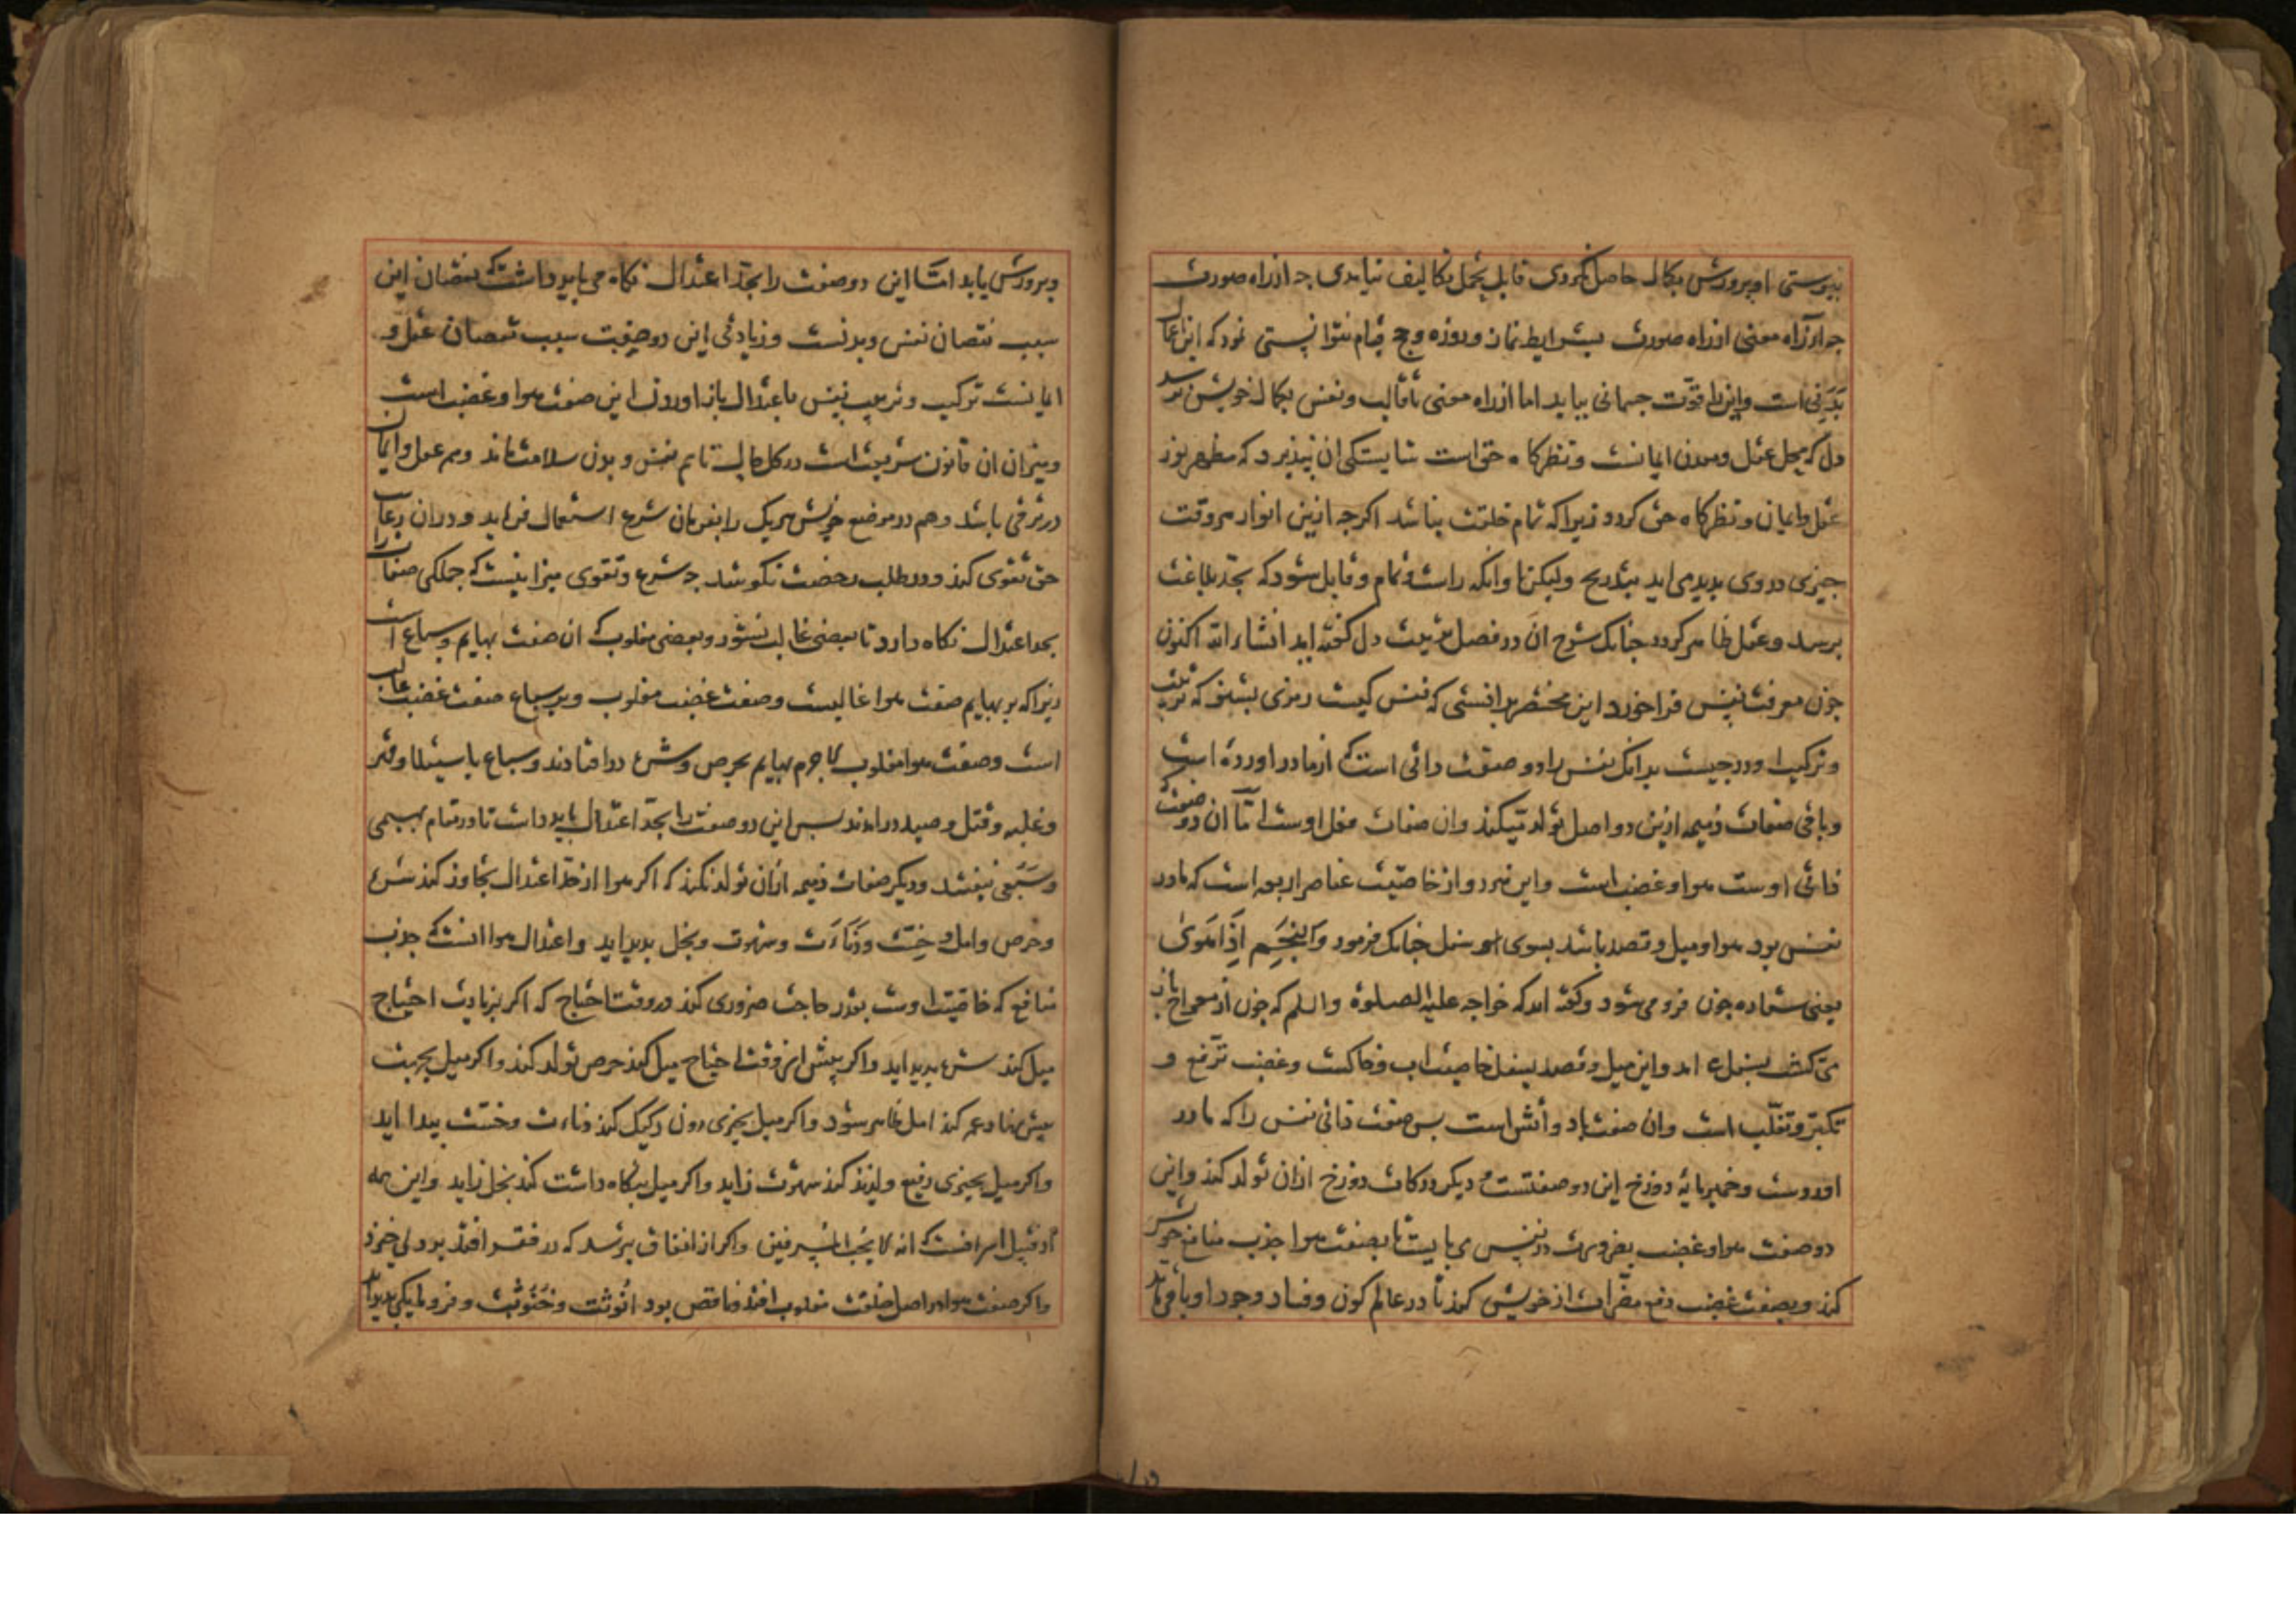 نپوستی او پرورش بکمال حاصل نکردی قابل تحمل تکالیف نیامدی چه از راه صورت
چه از راه معنی از راه صورت بشرایط نماز و روزه و حج قیام نتوانستی نمود که این اعمال
بدنی است و این را قوت جسمانی بباید اما از راه معنی تا قالب و نفس بکمال خویش نرسد
دل که محل عقل و معدن ایمانست و نظرگاه حق است شایستگی ان نپذیرد که مظهر نور
عقل و ایمان و نظرگاه حق گردد زیرا که تمام خلقت نباشد اگرچه ازین انوار هر وقت
چیزی در وی پدید می اید بتدریج ولیکن تا وانکه راست و تمام و قابل شود که بحد بلاغت
برسد و عقل ظاهر گردد چنانک شرح ان در فصل تربیت دل گفته اید انشاءالله اکنون
چون معرفت نفس فراخورد این مختصر بدانستی که نفس کیست رمزی بشنو که تربیت
و تزکیه او در چیست بدانک نفس را دو صفت ذاتی است که از مادر آورده است
و باقی صفات ذمیمه ازین دو اصل تولد میکند و ان صفات فعل اوست اما ان دو صفت که
ذاتی اوست هوا و غضب است و این هر دو از خاصیت عناصر اربعه است که مادر
نفس بود هوا میل و قصد باشد بسوی سفل چنانک فرمود وَالنَّجْمِ اِذَا هَوىٰ
یعنی ستاره چون فرو می شود و گفته اند که خواجه علیه الصلوة والسلم که چون از معراج باز
می گشت بسفل امد و این میل و قصد بسفل خاصیت اب و خاکست و غضب ترفع و
تکبر و تغلب است و ان صفت باد و آتش است پس صفت ذاتی نفس را که مادر
اوردست و خمیرمایه دوزخ این دو صفتست و دیگر درکات دوزخ ازان تولد کند و این
دو صفت هوا و غضب بضرورت در نفس می بایست تا بصفت هوا جذب منافع خویش
کند و بصفت غضب دفع مضرات از خویش کند تا در عالم کون و فساد وجود او باقی ماند
و پرورش یابد امّا این دو صفت را بحد اعتدال نگاه می باید داشت که نقصان این
سبب نقصان نفس و بدنست و زیادتی این دو صفت سبب نقصان عقل و
ایمانست تزکیه و تربیت نفس باعتدال باز اوردن این صفت هوا و غضب است
و میزان ان قانون شریعت است در کل حال تا هم نفس و بدن سلامت ماند و هم عقل و ایمان
در ترقی باشد و هم در موضع خویش هر یک را بفرمان شرع استعمال فرماید و در ان رعایت
حق تقوی کند و در طلب رخصت نکوشد چه شرع و تقوی میزانیست که جملگی صفات را
بحد اعتدال نگاه دارد تا بعضی غالب نشود و بعضی مغلوب که ان صفت بهایم و سباع است
زیرا که بر بهایم صفت هوا غالبست و صفت غضب مغلوب و بر سباع صفت غضب غالب
است و صفت هوا مغلوب لاجرم بهایم بحرص و شره در افتادند و سباع باستیلا و قهر
و غلبه و قتل و صید درامدند پس این دو صفت را بحد اعتدال باید داشت تا در مقام بهیمی
و سَبُعی نیفتند و دیگر صفات ذمیمه ازان تولد نکند که اگر هوا از حد اعتدال تجاوز کند شره
و حرص و امل و خسّت و دَناءَت و شهوت و بخل پدید اید و اعتدال هوا انست که جذب
منافع که خاصیت اوست بقدر حاجت ضروری کند در وقت احتیاج که اگر بزیادت احتیاج
میل کند شره پدید اید و اگر پیش از وقت احتیاج میل کند حرص تولد کند و اگر میل بجهت
پیش نهاد عمر کند امل ظاهر شود و اگر میل بچیزی دون رکیک کند دناءت و خسّت پیدا اید
و اگر میل بچیزی رفیع و لذیذ کند شهوت زاید و اگر میل بنگاه داشت کند بخل زاید و این همه
از قبیل اسرافست که انه لا یحب المسرفین و اگر از انفاق بترسد که در فقر افتد بددلی خیزد
و اگر صفت هوا در اصل خلقت مغلوب افتد و ناقص بود انوثت و خنوثت و فرومایگی پدید آید